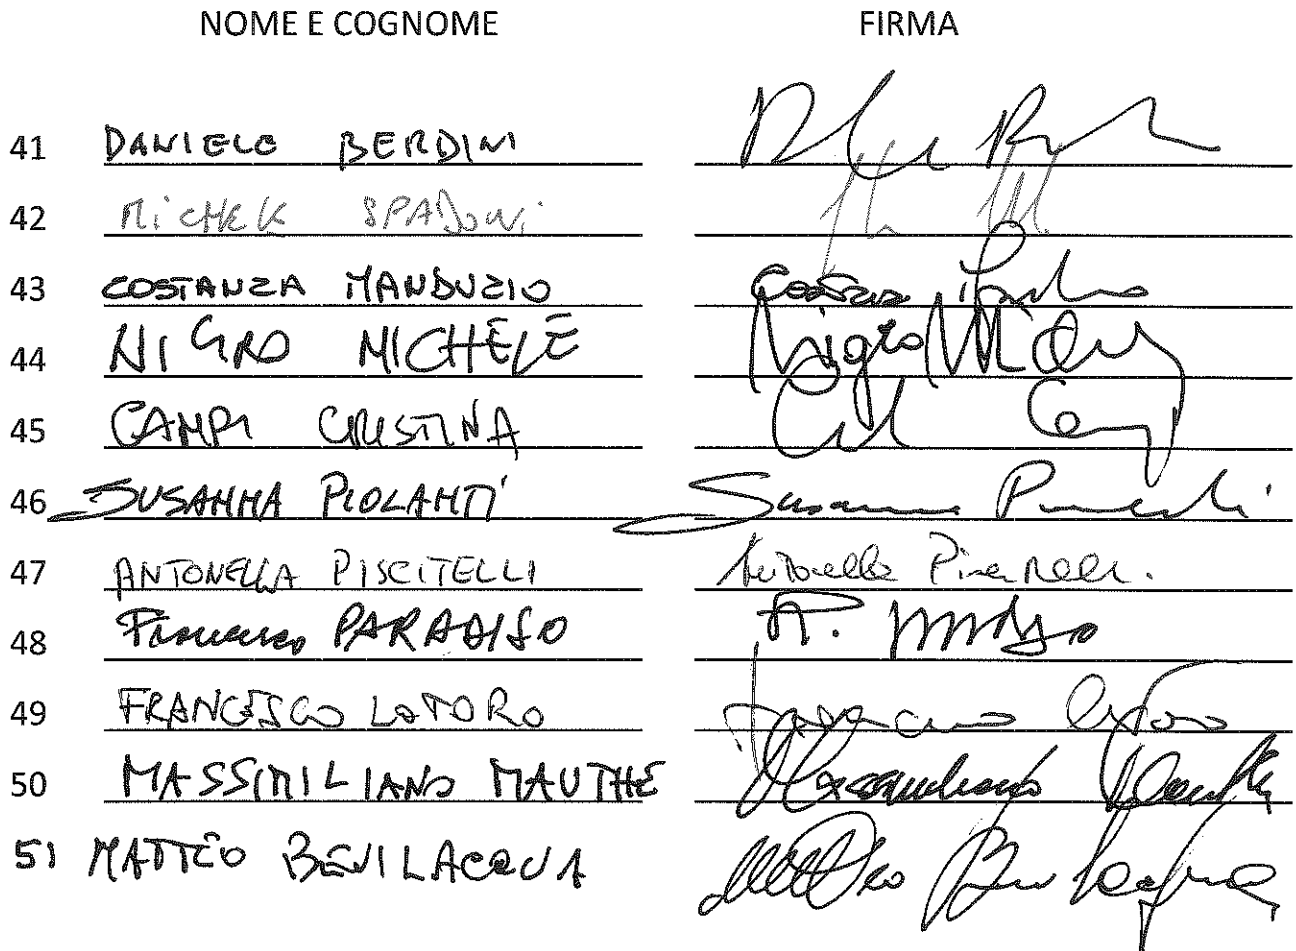 NOME E COGNOME FIRMA
41 DANIELE BERDINI
42 MICHELE SPADONI
43 COSTANZA MANDUZIO Costanza
44 NIGRO MICHELE Nigro
45 CAMPI CRISTINA
46 SUSANNA PIOLANTI Susanna
47 ANTONELLA PISCITELLI Antonella Piscitelli
48 Francesco PARADISO F.
49 FRANCESCO LOTORO Francesco Lotoro
50 MASSIMILIANO MAUTHE Massimiliano Mauthe
51 MATTEO BEVILACQUA Matteo Bevilacqua